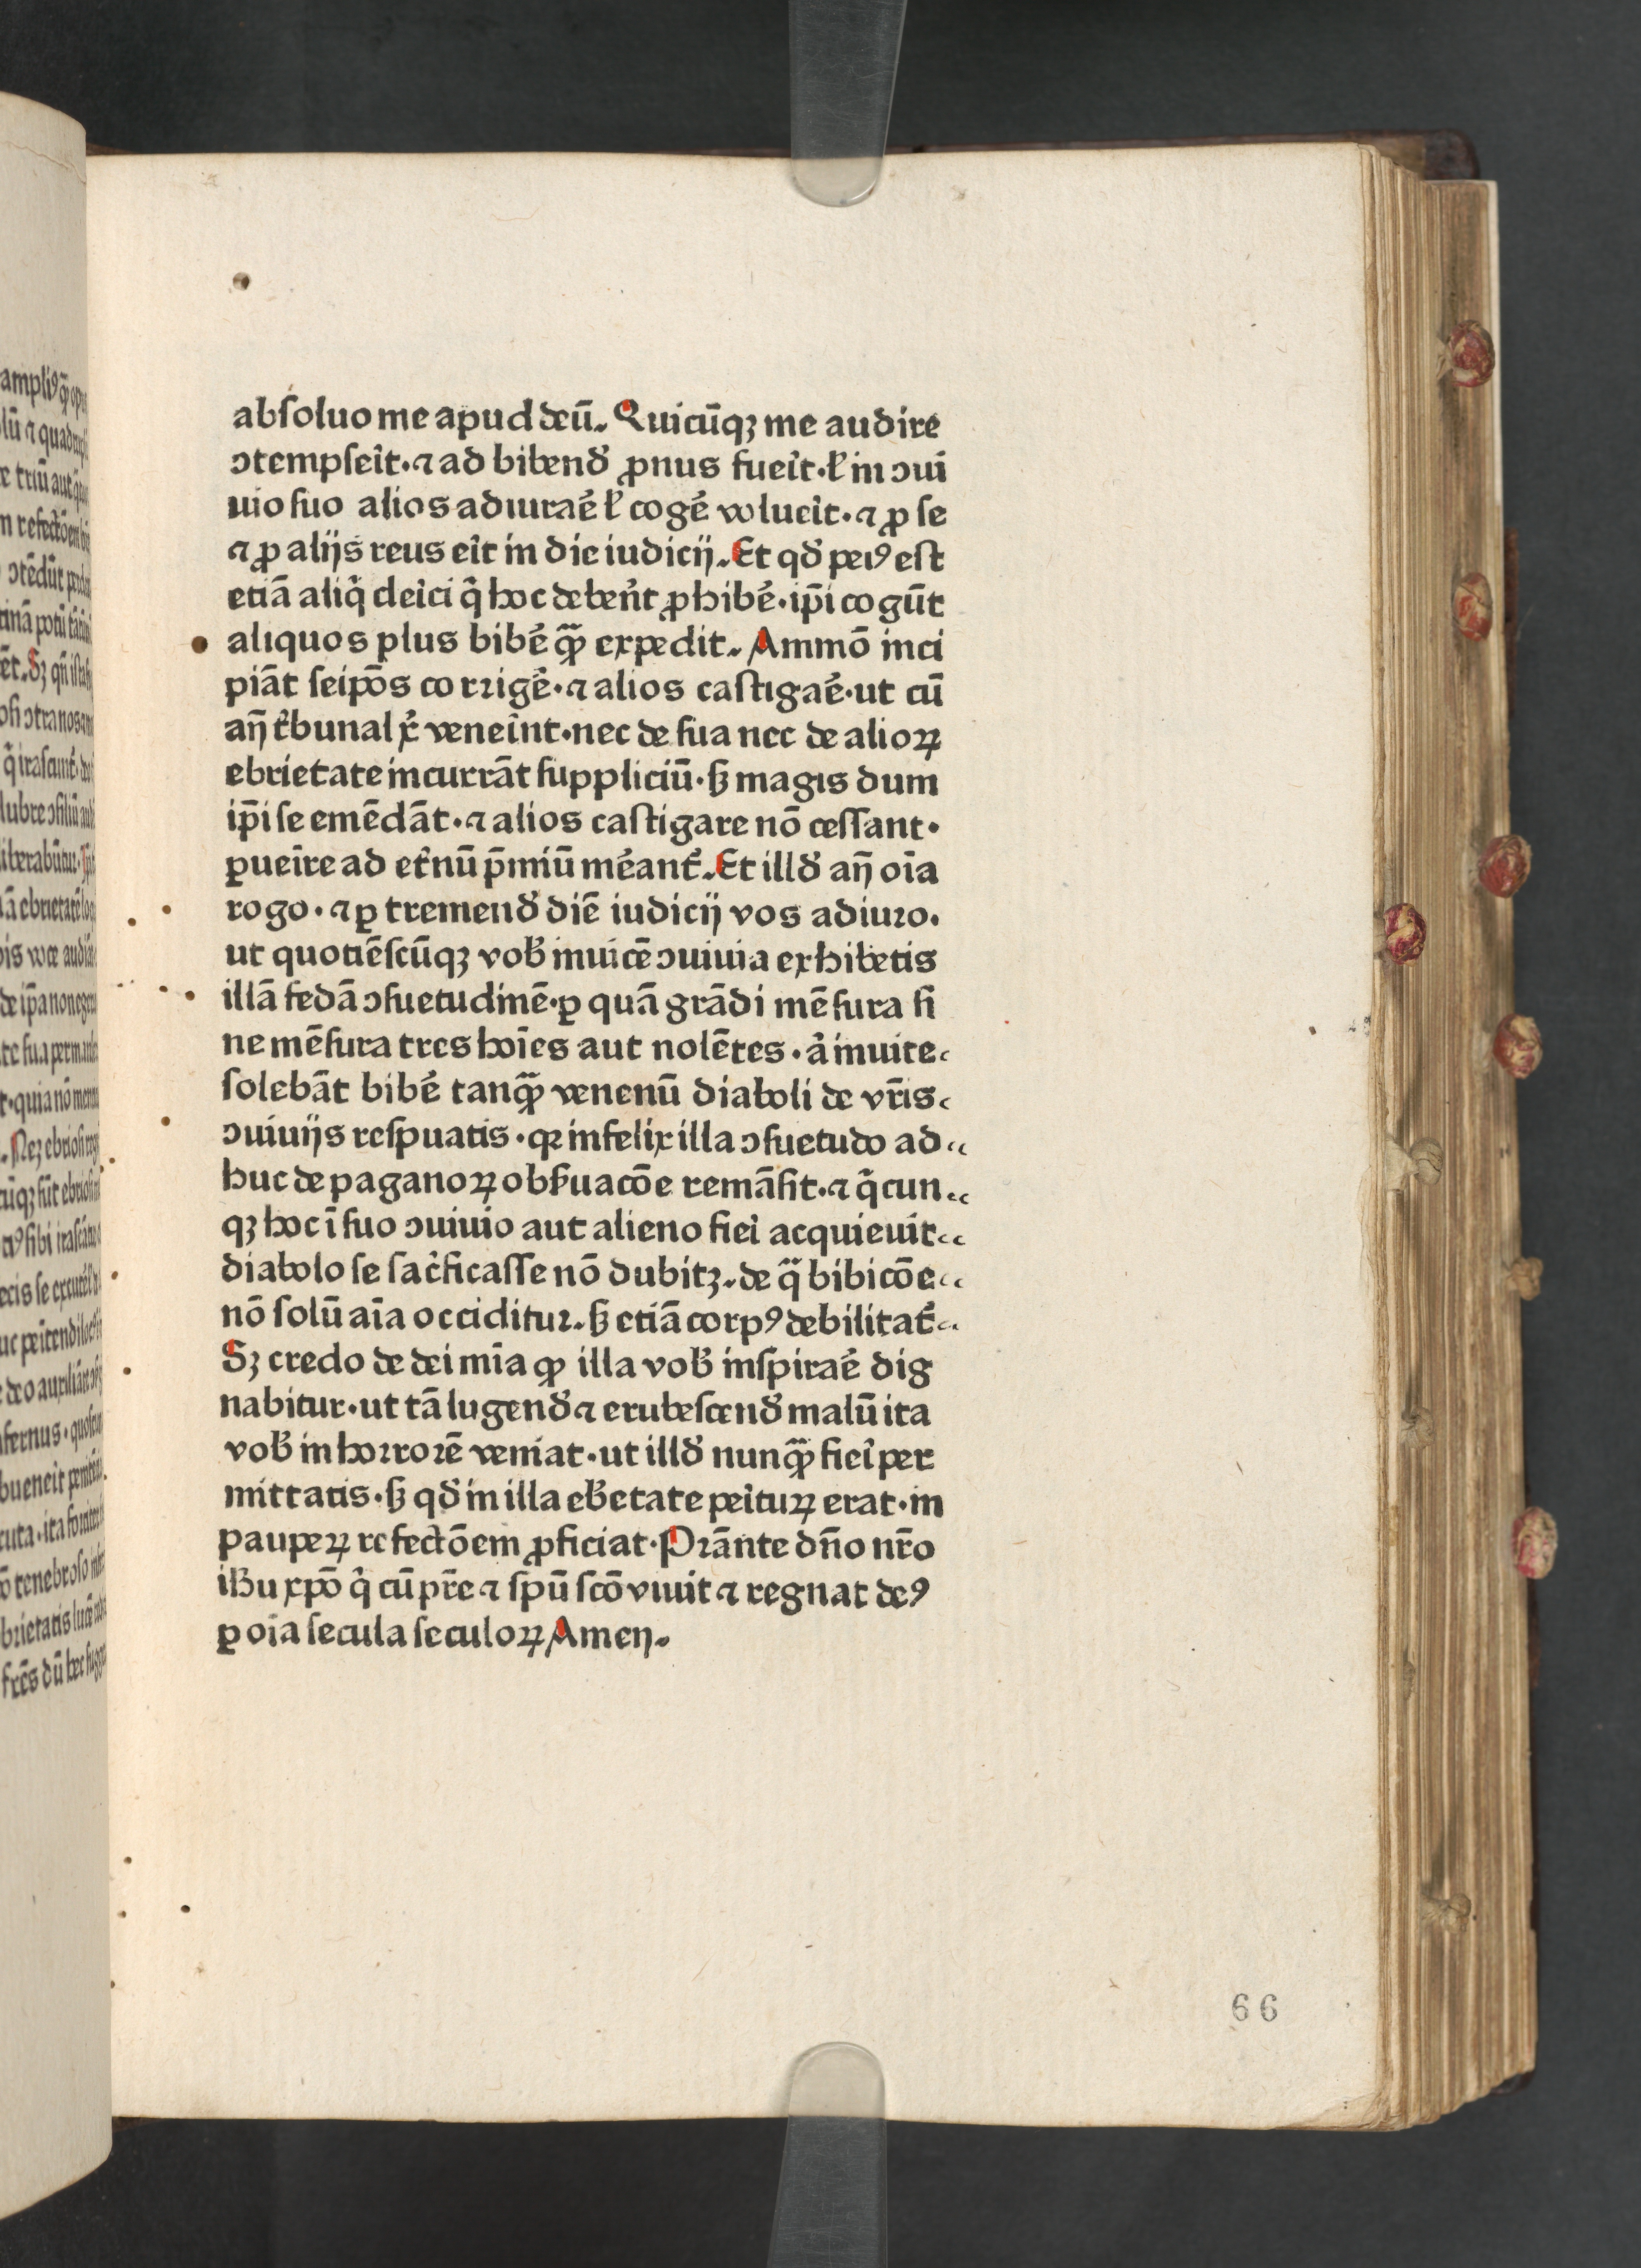 absoluo me apud deū. Quicūqꝫ me audire
ↄtempseīt· ⁊ ad bibend̄ ꝓnus fueīt· ł in ↄui
uio suo alios adiuraē ł cogē voluerit· ⁊ ꝓ se
⁊ ꝓ alijs reus eīt in die iudicij. Et qd̄ peiꝰ est
etiā aliq̄ cleīci q̄ hoc debēnt ꝓhibē· ip̄i cogūt
aliquos plus bibē qꝫ̄ expedit. Ammō inci
piāt seip̄os corrigē· ⁊ alios castigaē· ut cū
an̄ t̄bunal xͥ veneīnt· nec de sua nec de alioꝝ
ebrietate incurrāt suppliciū· sꝫ magis dum
ip̄i se emēdāt· ⁊ alios castigare nō cessant·
ꝑueīre ad et̄nū p̄miū mēant̄. Et illd̄ an̄ oīa
rogo· ⁊ ꝑ tremend̄ diē iudicij vos adiuro.
ut quotiēscūqꝫ vob̄ inuicē ↄuiuia exhibetis
illā fedā ↄsuetudinē· ꝑ quā grādi mēsura si
ne mēsura tres hoīes aut nolētes· a̓ inuite
solebāt bibē tanqꝫ̄ venenū diaboli de vr̄is
ↄuiuijs respuatis· qꝛ infelix illa ↄsuetudo ad
huc de paganoꝝ obs̄uacōe remāsit· ⁊ q̄cun
qꝫ hoc ī suo ↄuiuio aut alieno fieī acquieuīt
diabolo se sac̄ficasse nō dubitꝫ. de q̄ bibicōe
nō solū aīa occiditur. sꝫ etiā corpꝰ debilitat̄
Sꝫ credo de dei mīa qꝫ illa vob̄ inspiraē dig
nabitur· ut tā lugend̄ ⁊ erubescend̄ malū ita
vob̄ in horrorē veniat· ut illd̄ nunqꝫ̄ fieī per
mittatis· sꝫ qd̄ in illa eb̄etate peītuꝝ erat· in
paupeꝝ refectōem ꝓficiat· Prānte dn̄o nr̄o
ih̄u xp̄o q̄ cū pr̄e ⁊ sp̄u scō viuit ⁊ regnat deꝰ
ꝑ oīa secula seculoꝝ Amen.
66